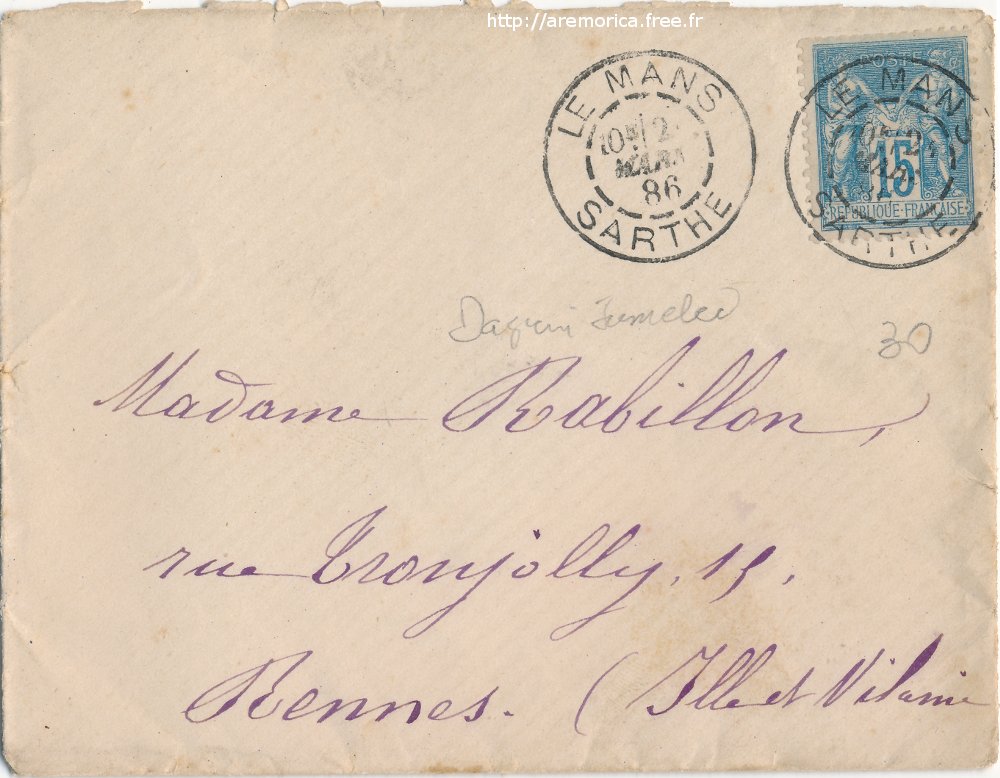 http://aremorica.free.fr
LE MANS
MARS
86
SARTHE
LE MANS
SARTHE
POSTES
15
REPUBLIQUE FRANÇAISE
30
Madame Rabillon,
rue Tronjolly, 15,
Rennes. (Ille et Vilaine